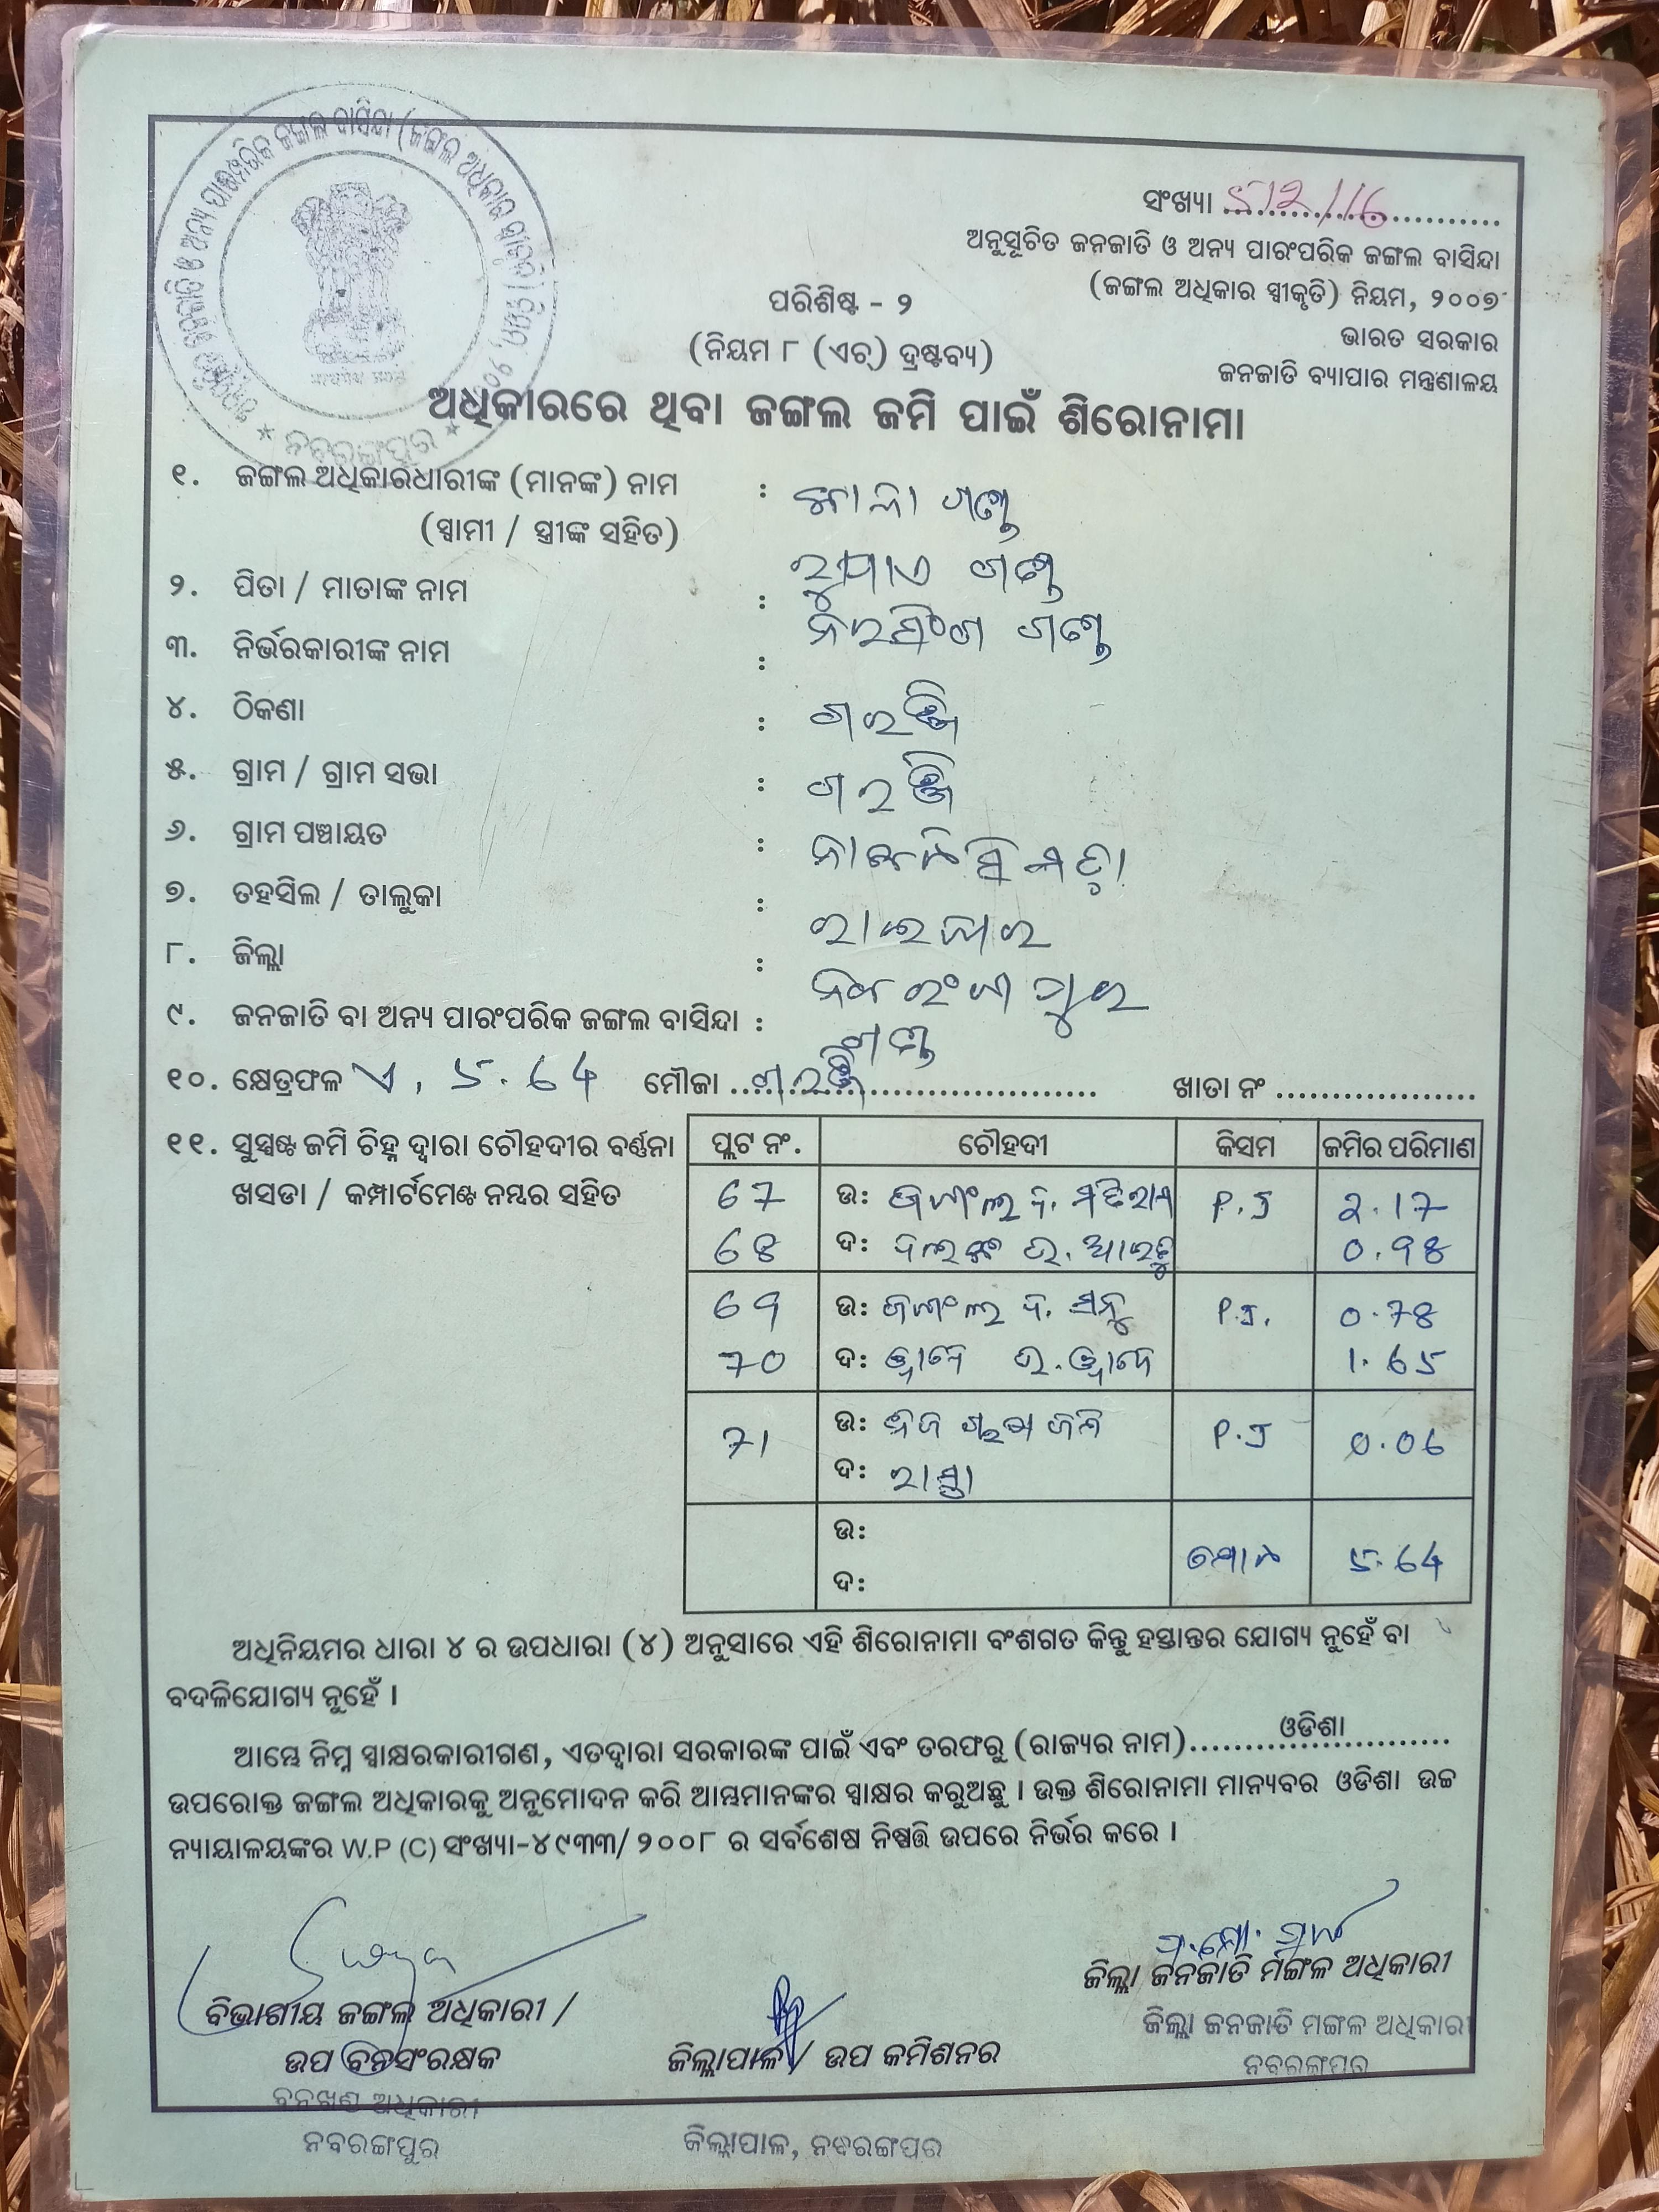 ଅନୁସୂଚିତ ଜନଜାତି ଓ ଅନ୍ୟ ପାରମ୍ପରିକ ଜଙ୍ଗଲ ବାସିନ୍ଦା (ଜଙ୍ଗଲ ଅଧିକାର ସ୍ୱୀକୃତି) ନିୟମ, ୨୦୦୭
ନବରଙ୍ଗପୁର
ସଂଖ୍ୟା
ଅନୁସୂଚିତ ଜନଜାତି ଓ ଅନ୍ୟ ପାରଂପରିକ ଜଙ୍ଗଲ ବାସିନ୍ଦା
(ଜଙ୍ଗଲ ଅଧିକାର ସ୍ୱୀକୃତି) ନିୟମ, ୨୦୦୭
ପରିଶିଷ୍ଟ - ୨
ଭାରତ ସରକାର
(ନିୟମ ୮ (ଏଚ୍) ଦ୍ରଷ୍ଟବ୍ୟ)
ଜନଜାତି ବ୍ୟାପାର ମନ୍ତ୍ରଣାଳୟ
ଅଧିକାରରେ ଥିବା ଜଙ୍ଗଲ ଜମି ପାଇଁ ଶିରୋନାମା
୧. ଜଙ୍ଗଲ ଅଧିକାରଧାରୀଙ୍କ (ମାନଙ୍କ) ନାମ : ଗଣ୍ଡ
(ସ୍ୱାମୀ / ସ୍ତ୍ରୀଙ୍କ ସହିତ)
୨. ପିତା / ମାତାଙ୍କ ନାମ : ଗଣ୍ଡ
୩. ନିର୍ଭରକାରୀଙ୍କ ନାମ : ନରସିଂଗ ଗଣ୍ଡ
୪. ଠିକଣା : ଗରଞ୍ଜି
୫. ଗ୍ରାମ / ଗ୍ରାମ ସଭା : ଗରଞ୍ଜି
୬. ଗ୍ରାମ ପଞ୍ଚାୟତ :
୭. ତହସିଲ / ତାଲୁକା : ରାଇଘର
୮. ଜିଲ୍ଲା : ନବରଂଗପୁର
୯. ଜନଜାତି ବା ଅନ୍ୟ ପାରଂପରିକ ଜଙ୍ଗଲ ବାସିନ୍ଦା : ଗଣ୍ଡ
୧୦. କ୍ଷେତ୍ରଫଳ ଏ. 5.64 ମୌଜା ଗରଞ୍ଜି ଖାତା ନଂ
୧୧. ସୁସ୍ପଷ୍ଟ ଜମି ଚିହ୍ନ ଦ୍ୱାରା ଚୌହଦୀର ବର୍ଣ୍ଣନା
ଖସଡା / କମ୍ପାର୍ଟମେଣ୍ଟ ନମ୍ବର ସହିତ
ପ୍ଲଟ ନଂ. ଚୌହଦୀ କିସମ ଜମିର ପରିମାଣ
67 ଉ: ଜଙ୍ଗଲ P.J 2.17
68 ଦ: 0.98
69 ଉ: ଜଙ୍ଗଲ P.J. 0.78
70 ଦ: 1.65
71 ଉ: ନିଜ P.J 0.06
ଦ: ରାସ୍ତା
ଉ: 5.64
ଦ:
ଅଧିନିୟମର ଧାରା ୪ ର ଉପଧାରା (୪) ଅନୁସାରେ ଏହି ଶିରୋନାମା ବଂଶଗତ କିନ୍ତୁ ହସ୍ତାନ୍ତର ଯୋଗ୍ୟ ନୁହେଁ ବା
ବଦଳିଯୋଗ୍ୟ ନୁହେଁ ।
ଆମ୍ଭେ ନିମ୍ନ ସ୍ୱାକ୍ଷରକାରୀଗଣ, ଏତଦ୍ୱାରା ସରକାରଙ୍କ ପାଇଁ ଏବଂ ତରଫରୁ (ରାଜ୍ୟର ନାମ) ଓଡିଶା
ଉପରୋକ୍ତ ଜଙ୍ଗଲ ଅଧିକାରକୁ ଅନୁମୋଦନ କରି ଆମ୍ଭମାନଙ୍କର ସ୍ୱାକ୍ଷର କରୁଅଛୁ । ଉକ୍ତ ଶିରୋନାମା ମାନ୍ୟବର ଓଡିଶା ଉଚ୍ଚ
ନ୍ୟାୟାଳୟଙ୍କର W.P (C) ସଂଖ୍ୟା-୪୯୩୩/୨୦୦୮ ର ସର୍ବଶେଷ ନିଷ୍ପତ୍ତି ଉପରେ ନିର୍ଭର କରେ ।
ଜିଲ୍ଲା ଜନଜାତି ମଙ୍ଗଳ ଅଧିକାରୀ
ବିଭାଗୀୟ ଜଙ୍ଗଲ ଅଧିକାରୀ /
ଜିଲ୍ଲା ଜନଜାତି ମଙ୍ଗଳ ଅଧିକାରୀ
ଉପ ବନସଂରକ୍ଷକ
ଜିଲ୍ଲାପାଳ / ଉପ କମିଶନର
ନବରଙ୍ଗପୁର
ବନଖଣ୍ଡ ଅଧିକାରୀ
ନବରଙ୍ଗପୁର
ଜିଲ୍ଲାପାଳ, ନବରଙ୍ଗପୁର